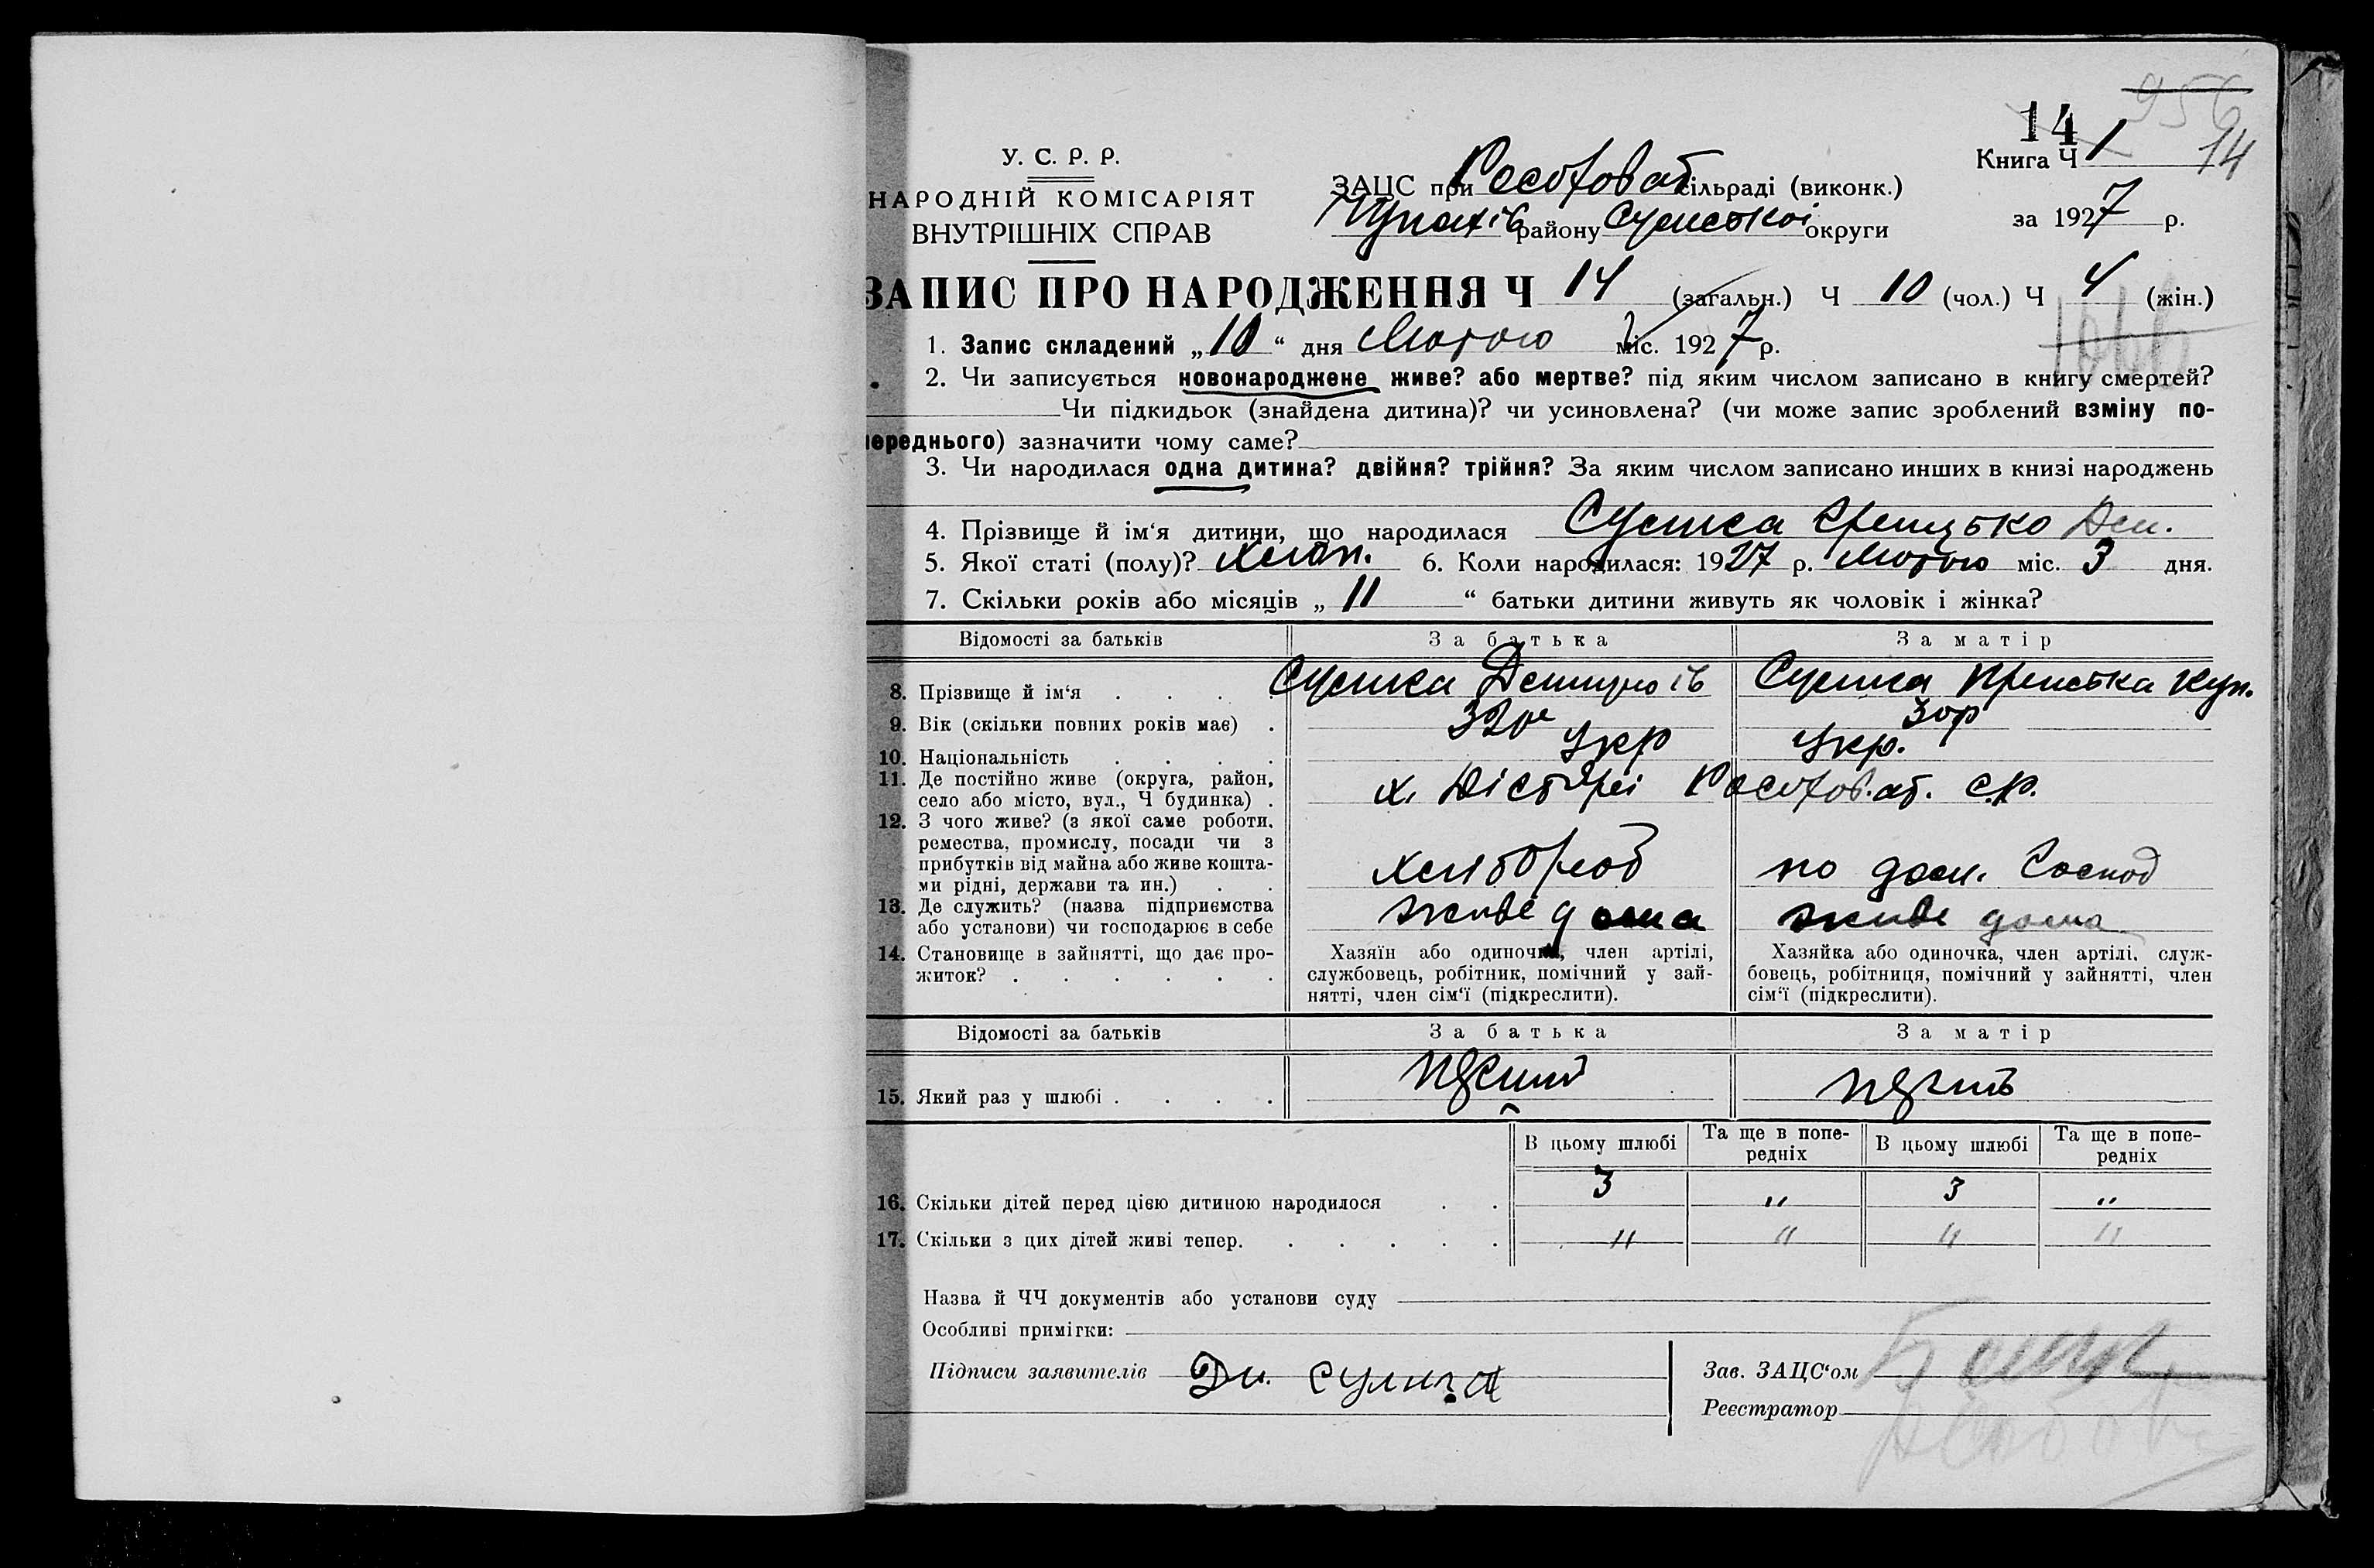 956
14
14
У. С. Р. Р.
НАРОДНІЙ КОМІСАРІЯТ
ВНУТРІШНІХ СПРАВ
Книга Ч 1
ЗАЦС при сільраді (виконк.)
району Сумської округи
за 1927 р.
ЗАПИС ПРО НАРОДЖЕННЯ Ч 14 (загальн.) Ч 10 (чол.) Ч 4 (жін.)
1. Запис складений „10“ дня Лютого міс. 1927 р.
2. Чи записується новонароджене живе? або мертве? під яким числом записано в книгу смертей?
Чи підкидьок (знайдена дитина)? чи усиновлена? (чи може запис зроблений взміну по-
переднього) зазначити чому саме?
3. Чи народилася одна дитина? двійня? трійня? За яким числом записано инших в книзі народжень
4. Прізвище й ім‘я дитини, що народилася Сулима Грицько Дем.
5. Якої статі (полу)? хлоп. 6. Коли народилася: 1927 р. Лютого міс. 3 дня.
7. Скільки років або місяців „11“ батьки дитини живуть як чоловік і жінка?
Відомості за батьків За батька За матір
8. Прізвище й ім‘я Сулима Сулима
9. Вік (скільки повних років має) 30р
10. Національність Укр Укр.
11. Де постійно живе (округа, район,
село або місто, вул., Ч будинка) х. с.р.
12. З чого живе? (з якої саме роботи,
ремества, промислу, посади чи з
прибутків від майна або живе кошта-
ми рідні, держави та ин.) хлібороб по дом. Господ
13. Де служить? (назва підприємства
або установи) чи господарює в себе живе дома живе дома
14. Становище в зайнятті, що дає про-
житок?
Хазяїн або одиночка, член артілі,
службовець, робітник, помічний у зай-
нятті, член сім‘ї (підкреслити).
Хазяйка або одиночка, член артілі, служ-
бовець, робітниця, помічний у зайнятті, член
сім‘ї (підкреслити).
Відомості за батьків За батька За матір
15. Який раз у шлюбі
В цьому шлюбі Та ще в попе-
редніх В цьому шлюбі Та ще в попе-
редніх
16. Скільки дітей перед цією дитиною народилося 3 " 3 "
17. Скільки з цих дітей живі тепер. " " " "
Назва й ЧЧ документів або установи суду
Особливі примітки:
Підписи заявителів Дм. Сулима
Зав. ЗАЦС‘ом
Реєстратор